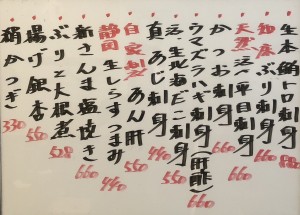 生本鮪トロ刺身
知床ぶり刺身 660
天然活〆平目刺身 660
かつお刺身 660
ウマズラハギ刺身(肝酢) 660
活生北海だこ刺身 550
真あじ刺身 440
自家製あん肝 550
静岡生しらすつまみ 440
新さんま塩焼き 660
ぶりと大根煮 528
揚げ銀杏 550
稍かつぎ 330